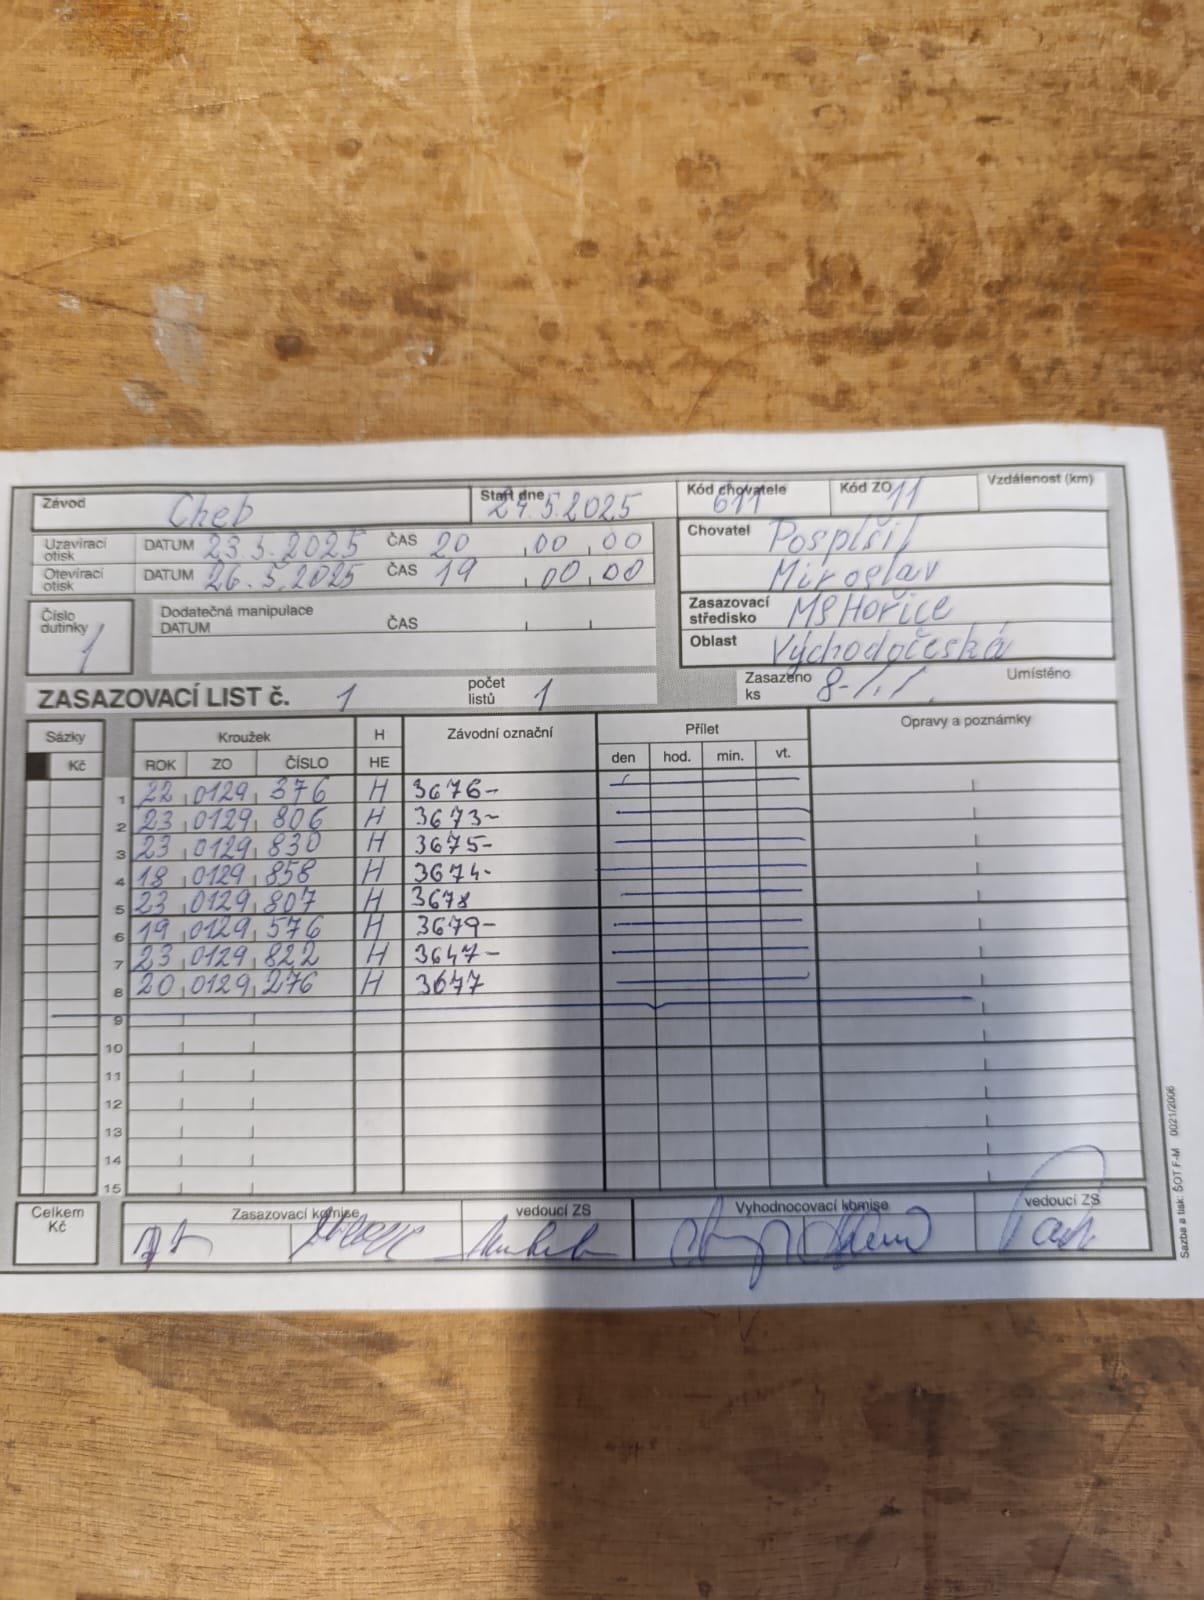 Závod Cheb Start dne 24.5.2025 Kód chovatele 611 Kód ZO 11 Vzdálenost (km)
Uzavírací otisk DATUM 23.5.2025 ČAS 20 00 00
Otevírací otisk DATUM 26.5.2025 ČAS 19 00 00
Chovatel Pospíšil
Miroslav
Číslo dutinky 1 Dodatečná manipulace
DATUM ČAS
Zasazovací středisko MS Hořice
Oblast Východočeská
ZASAZOVACÍ LIST č. 1 počet listů 1 Zasazeno ks 8 Umístěno
Sázky Kroužek H Závodní označní Přílet Opravy a poznámky
Kč ROK ZO ČÍSLO HE den hod. min. vt.
1 22 0129 376 H 3676-
2 23 0129 806 H 3673-
3 23 0129 830 H 3675-
4 18 0129 858 H 3674-
5 23 0129 807 H 3678
6 19 0129 576 H 3679-
7 23 0129 822 H 3647-
8 20 0129 276 H 3677
9
10
11
12
13
14
15
Celkem Kč Zasazovací komise vedoucí ZS Vyhodnocovací komise vedoucí ZS
Sazba a tisk: ŠOT F-M 0021/2006